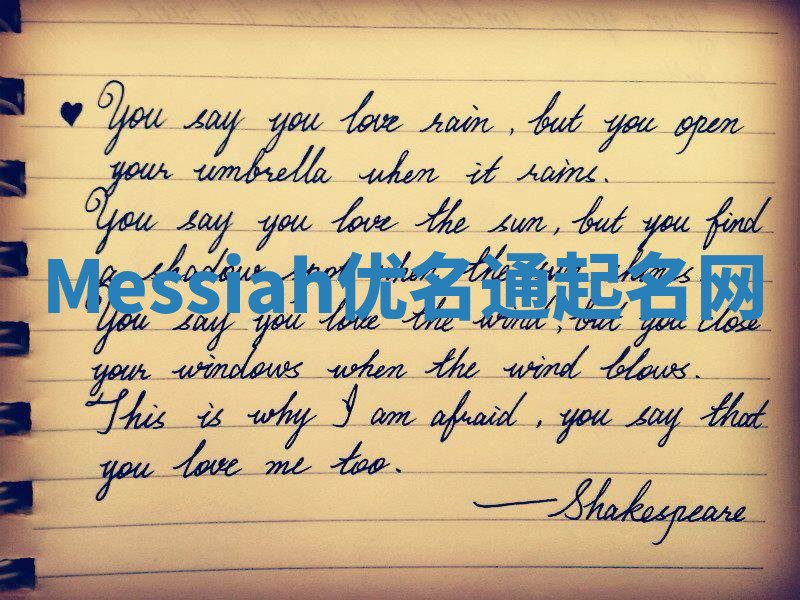 You say you love rain, but you open
your umbrella when it rains.
You say you love the sun, but you find
a shadow spot when the sun shines
Messiah优名通起名网
You say you love the wind, but you close
your windows when the wind blows.
This is why I am afraid, you say that
you love me too.
—Shakespeare